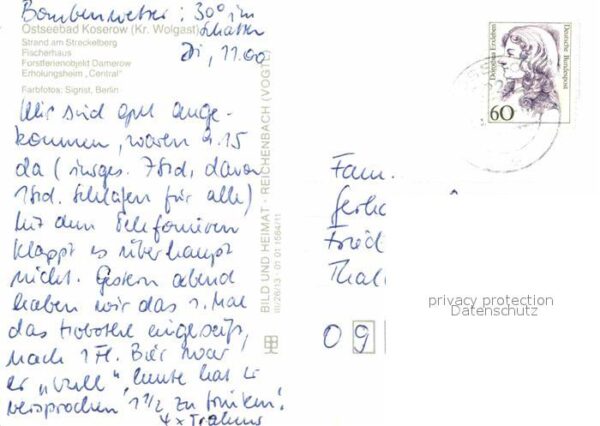 Bombenwetter: 30° im
Schatten
Di, 11.00
Ostseebad Koserow (Kr. Wolgast)
Strand am Streckelberg
Fischerhaus
Forstferienobjekt Damerow
Erholungsheim „Central“
Farbfotos: Sigrist, Berlin
Wir sind gut ange-
kommen, waren 4.15
da (insges. 7 Std, davon
1 Std. Schlafen für alle)
Mit dem Telefonieren
klappt es überhaupt
nicht. Gestern abend
haben wir das 1. Mal
das eingeseift,
nach 1 Fl. Bier war
er „voll“, heute hat er
versprochen 1 1/2 zu trinken!
4x
BILD UND HEIMAT · REICHENBACH (VOGTL)
III/26/13 01 01 1564/11
Dorothea Erxleben
Deutsche Bundespost
60
Fam.
Gerh
Fried
Thal
privacy protection
Datenschutz
0 9